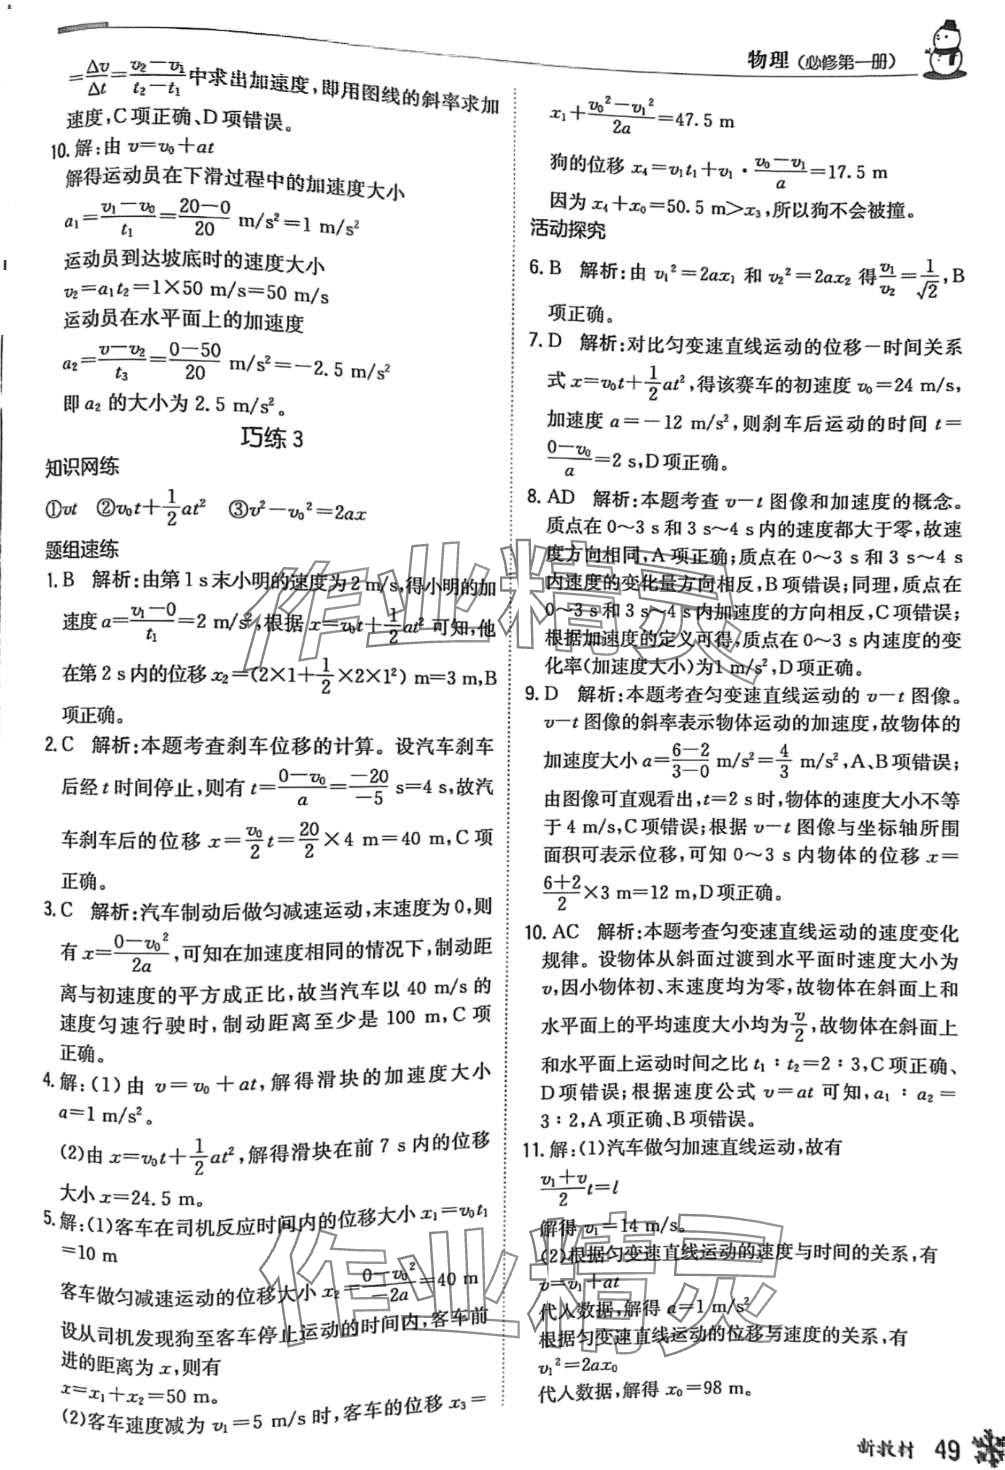 物理(必修第一册)
=Δv/Δt=(v₂-v₁)/(t₂-t₁)中求出加速度,即用图线的斜率求加
速度,C项正确、D项错误。
10. 解:由 v=v₀+at
解得运动员在下滑过程中的加速度大小
a₁=(v₁-v₀)/t₁=(20-0)/20 m/s²=1 m/s²
运动员到达坡底时的速度大小
v₂=a₁t₂=1×50 m/s=50 m/s
运动员在水平面上的加速度
a₂=(v-v₂)/t₃=(0-50)/20 m/s²=-2.5 m/s²
即 a₂ 的大小为 2.5 m/s²。
巧练 3
知识网练
①vt ②v₀t+1/2at² ③v²-v₀²=2ax
题组速练
1. B 解析:由第 1 s 末小明的速度为 2 m/s,得小明的加
速度 a=(v₁-0)/t₁=2 m/s²,根据 x=v₀t+1/2at² 可知,他
在第 2 s 内的位移 x₂=(2×1+1/2×2×1²) m=3 m,B
项正确。
2. C 解析:本题考查刹车位移的计算。设汽车刹车
后经 t 时间停止,则有 t=(0-v₀)/a=(-20)/(-5) s=4 s,故汽
车刹车后的位移 x=v₀/2t=20/2×4 m=40 m,C项
正确。
3. C 解析:汽车制动后做匀减速运动,末速度为 0,则
有 x=(0-v₀²)/2a,可知在加速度相同的情况下,制动距
离与初速度的平方成正比,故当汽车以 40 m/s 的
速度匀速行驶时,制动距离至少是 100 m,C项
正确。
4. 解:(1)由 v=v₀+at,解得滑块的加速度大小
a=1 m/s²。
(2)由 x=v₀t+1/2at²,解得滑块在前 7 s 内的位移
大小 x=24.5 m。
5. 解:(1)客车在司机反应时间内的位移大小 x₁=v₀t₁
=10 m
客车做匀减速运动的位移大小 x₂=(0-v₀²)/(-2a)=40 m
设从司机发现狗至客车停止运动的时间内,客车前
进的距离为 x,则有
x=x₁+x₂=50 m。
(2)客车速度减为 v₁=5 m/s 时,客车的位移 x₃=
x₁+(v₀²-v₁²)/2a=47.5 m
狗的位移 x₄=v₁t₁+v₁·(v₀-v₁)/a=17.5 m
因为 x₄+x₀=50.5 m>x₃,所以狗不会被撞。
活动探究
6. B 解析:由 v₁²=2ax₁ 和 v₂²=2ax₂ 得 v₁/v₂=1/√2,B
项正确。
7. D 解析:对比匀变速直线运动的位移—时间关系
式 x=v₀t+1/2at²,得该赛车的初速度 v₀=24 m/s,
加速度 a=-12 m/s²,则刹车后运动的时间 t=
(0-v₀)/a=2 s,D项正确。
8. AD 解析:本题考查 v—t 图像和加速度的概念。
质点在 0~3 s 和 3 s~4 s 内的速度都大于零,故速
度方向相同,A项正确;质点在 0~3 s 和 3 s~4 s
内速度的变化量方向相反,B项错误;同理,质点在
0~3 s 和 3 s~4 s 内加速度的方向相反,C项错误;
根据加速度的定义可得,质点在 0~3 s 内速度的变
化率(加速度大小)为1 m/s²,D项正确。
9. D 解析:本题考查匀变速直线运动的 v—t 图像。
v—t 图像的斜率表示物体运动的加速度,故物体的
加速度大小 a=(6-2)/(3-0) m/s²=4/3 m/s²,A、B项错误;
由图像可直观看出,t=2 s 时,物体的速度大小不等
于 4 m/s,C项错误;根据 v—t 图像与坐标轴所围
面积可表示位移,可知 0~3 s 内物体的位移 x=
(6+2)/2×3 m=12 m,D项正确。
10. AC 解析:本题考查匀变速直线运动的速度变化
规律。设物体从斜面过渡到水平面时速度大小为
v,因小物体初、末速度均为零,故物体在斜面上和
水平面上的平均速度大小均为v/2,故物体在斜面上
和水平面上运动时间之比 t₁∶t₂=2∶3,C项正确、
D项错误;根据速度公式 v=at 可知,a₁∶a₂=
3∶2,A项正确、B项错误。
11. 解:(1)汽车做匀加速直线运动,故有
(v₁+v)/2t=l
解得 v₁=14 m/s。
(2)根据匀变速直线运动的速度与时间的关系,有
v=v₁+at
代入数据,解得 a=1 m/s²
根据匀变速直线运动的位移与速度的关系,有
v₁²=2ax₀
代入数据,解得 x₀=98 m。
新教材 49
作业精灵
作业精灵